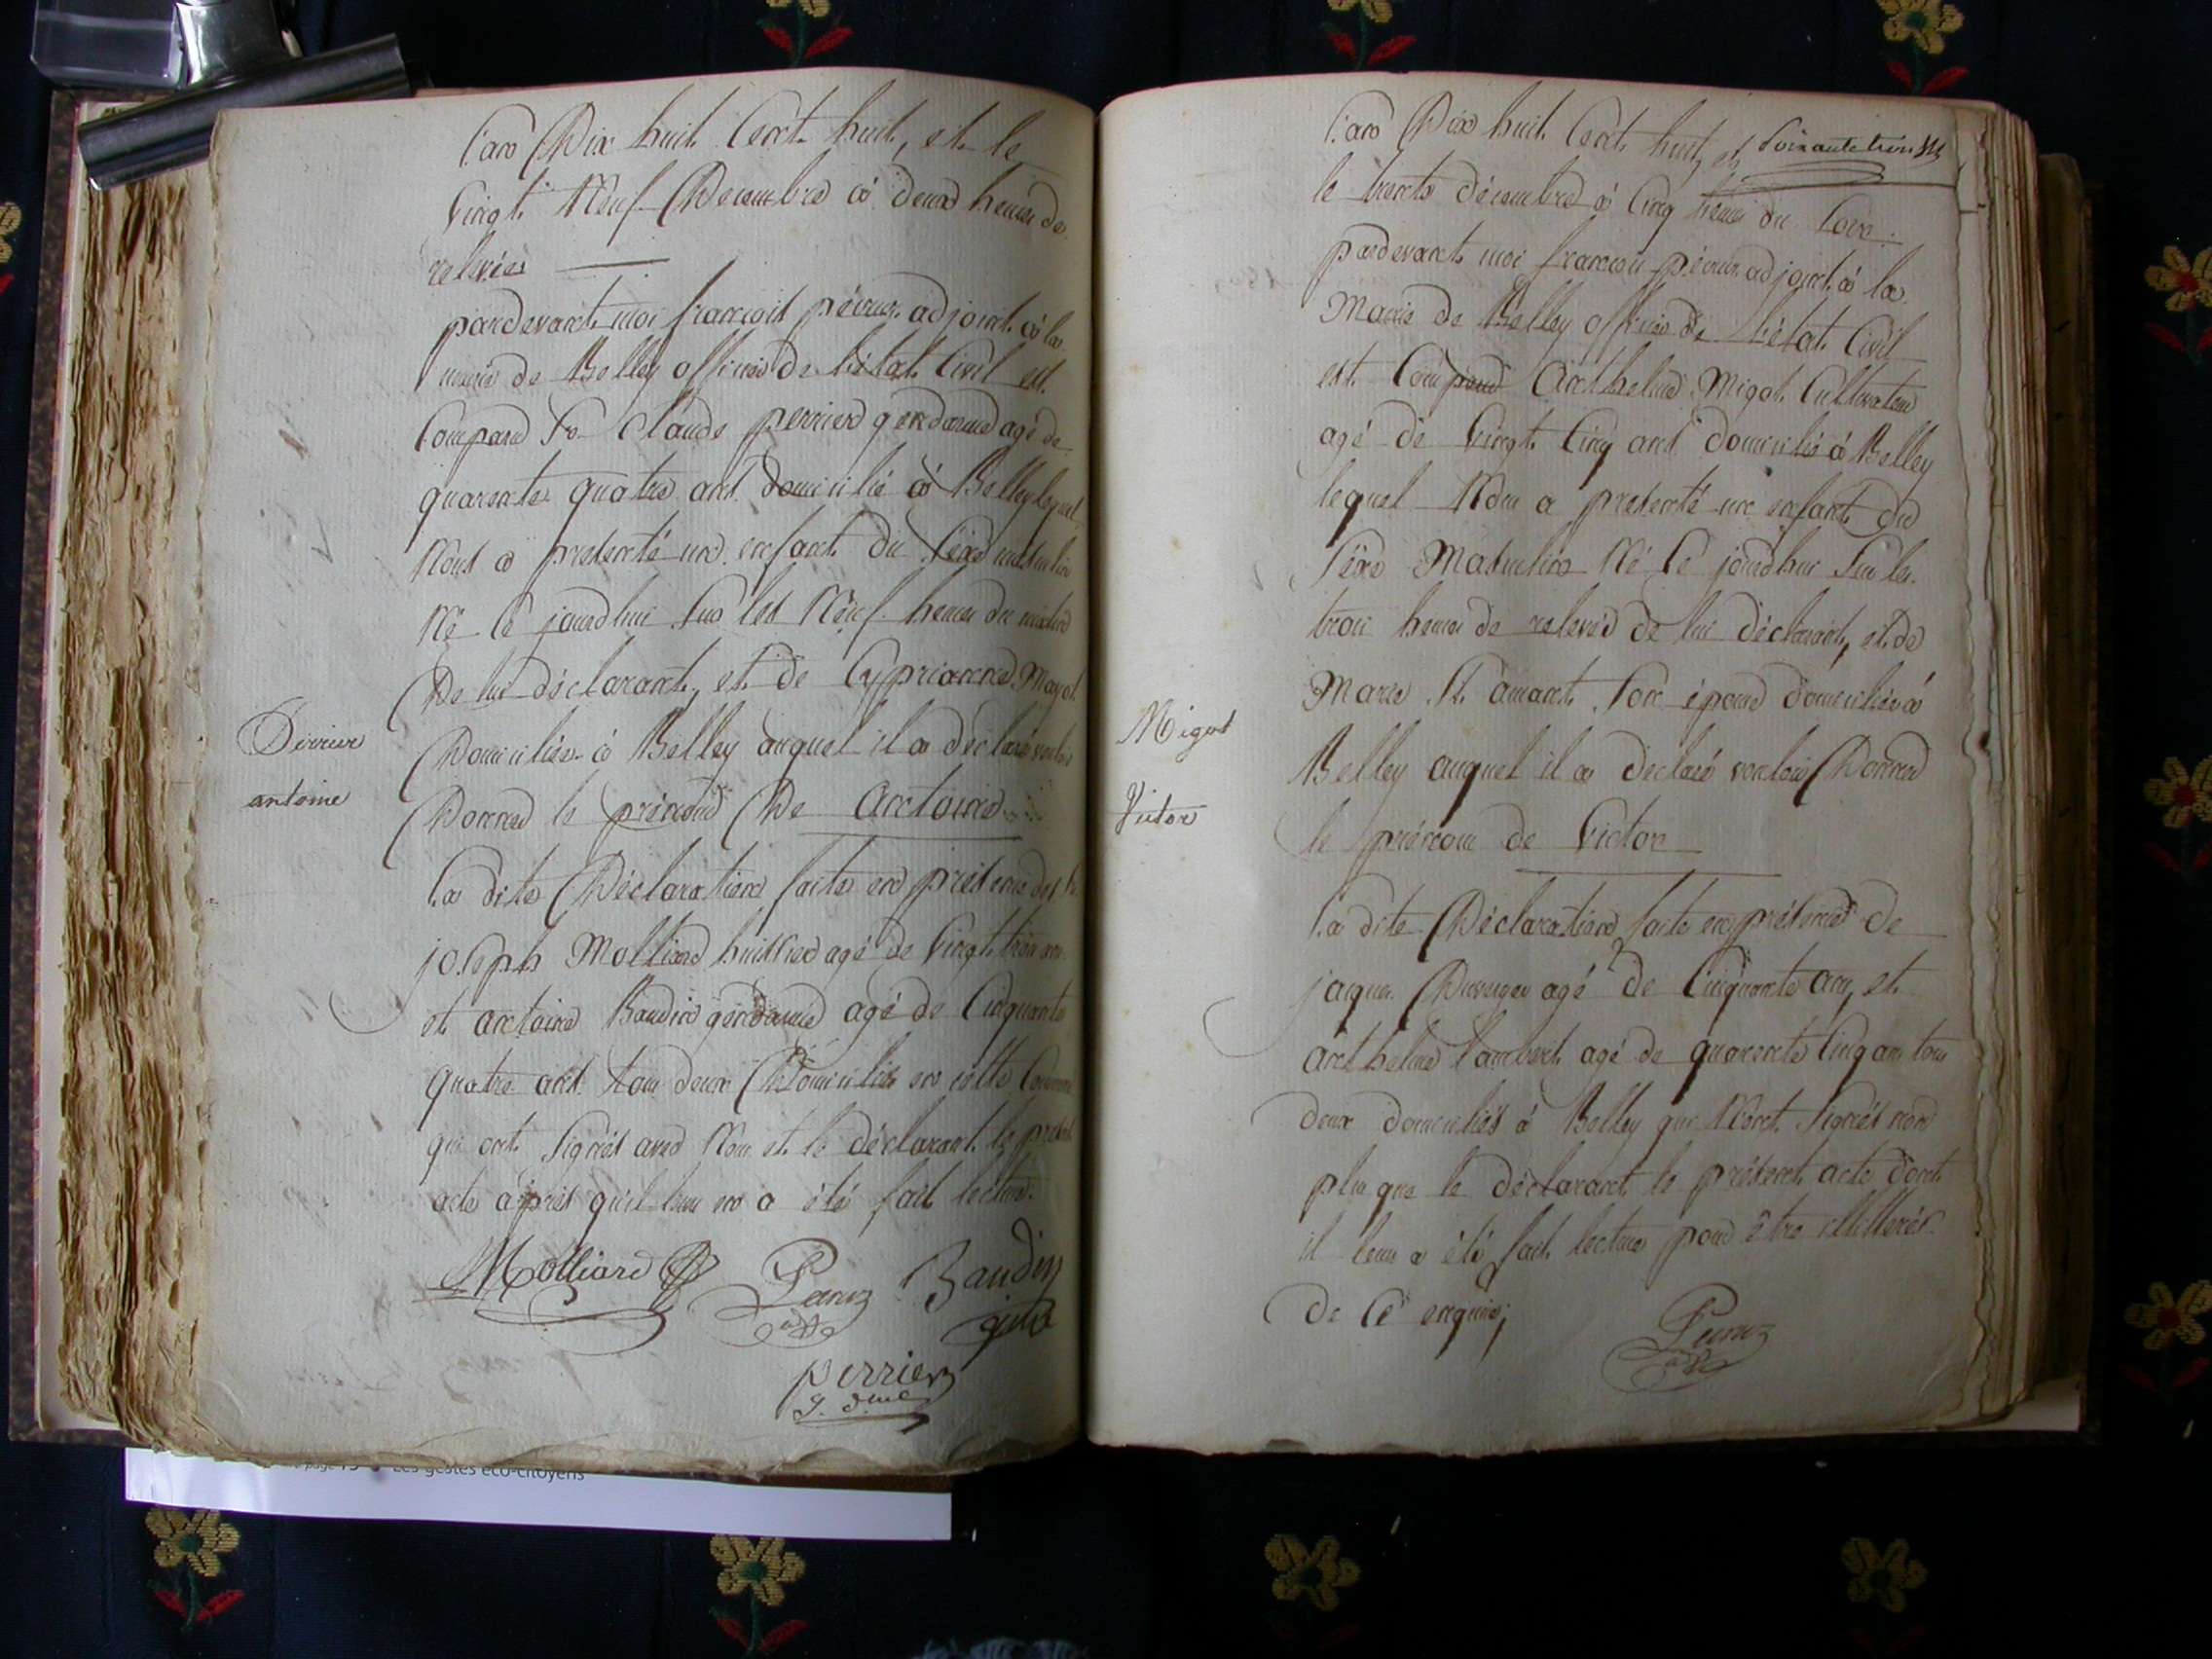 L'an Dix huit Cent huit, et le
Vingt Neuf Décembre à deux heures de
relevée
pardevant moi françois adjoint à la
mairie de Belley officier de l'état Civil est
Comparu Sr Claude perrier gendarme agé de
quarente quatre ans domicilié à Belley lequel
Nous a presenté un enfant du Séxe masculin
Né Ce jourdhui Sur les Neuf heures du matin
De lui déclarant, et de Cyprianne Mayot
Domiciliée à Belley auquel il a déclaré vouloir
Donner le prénom De Antoine
La dite Déclaration faite en présence des Srs
joseph Molliard huissier agé de Vingt trois ans
et antoine Baudin gendarme agé de Cinquante
quatre ans tous deux Domiciliés en cette Commune
qui ont Signés avec Nous et le déclarant le présent
acte après qu'il leur en a été fait lecture.
Perrier
antoine
Molliard
Baudin
perrier
g. dme
L'an Dix huit Cent huit, et
Soixante trois
le trente décembre à Cinq heures du Soir.
pardevant moi françois adjoint à la
Mairie de Belley officier de L'état Civil
est Comparu Anthelme Migot Cultivateur
agé de Vingt Cinq ans domicilié à Belley
lequel Nous a presenté un enfant du
Séxe Masculin Né Ce jourdhui Sur les
trois heures de relevée de lui déclarant, et de
Marie St. amant Son épouse domiciliée à
Belley auquel il a declaré vouloir Donner
le prénom de Victor
La dite Déclaration faite en présence de
jacques agé de Cinquante ans, et
anthelme Lambert agé de quarente Cinq ans tous
deux domiciliés à Belley qui N'ont Signés non
plus que le déclarant le présent acte dont
il leur a été fait lecture pour être illettérés
de Ce enquis,
Migot
Victor
Les gestes éco-citoyens